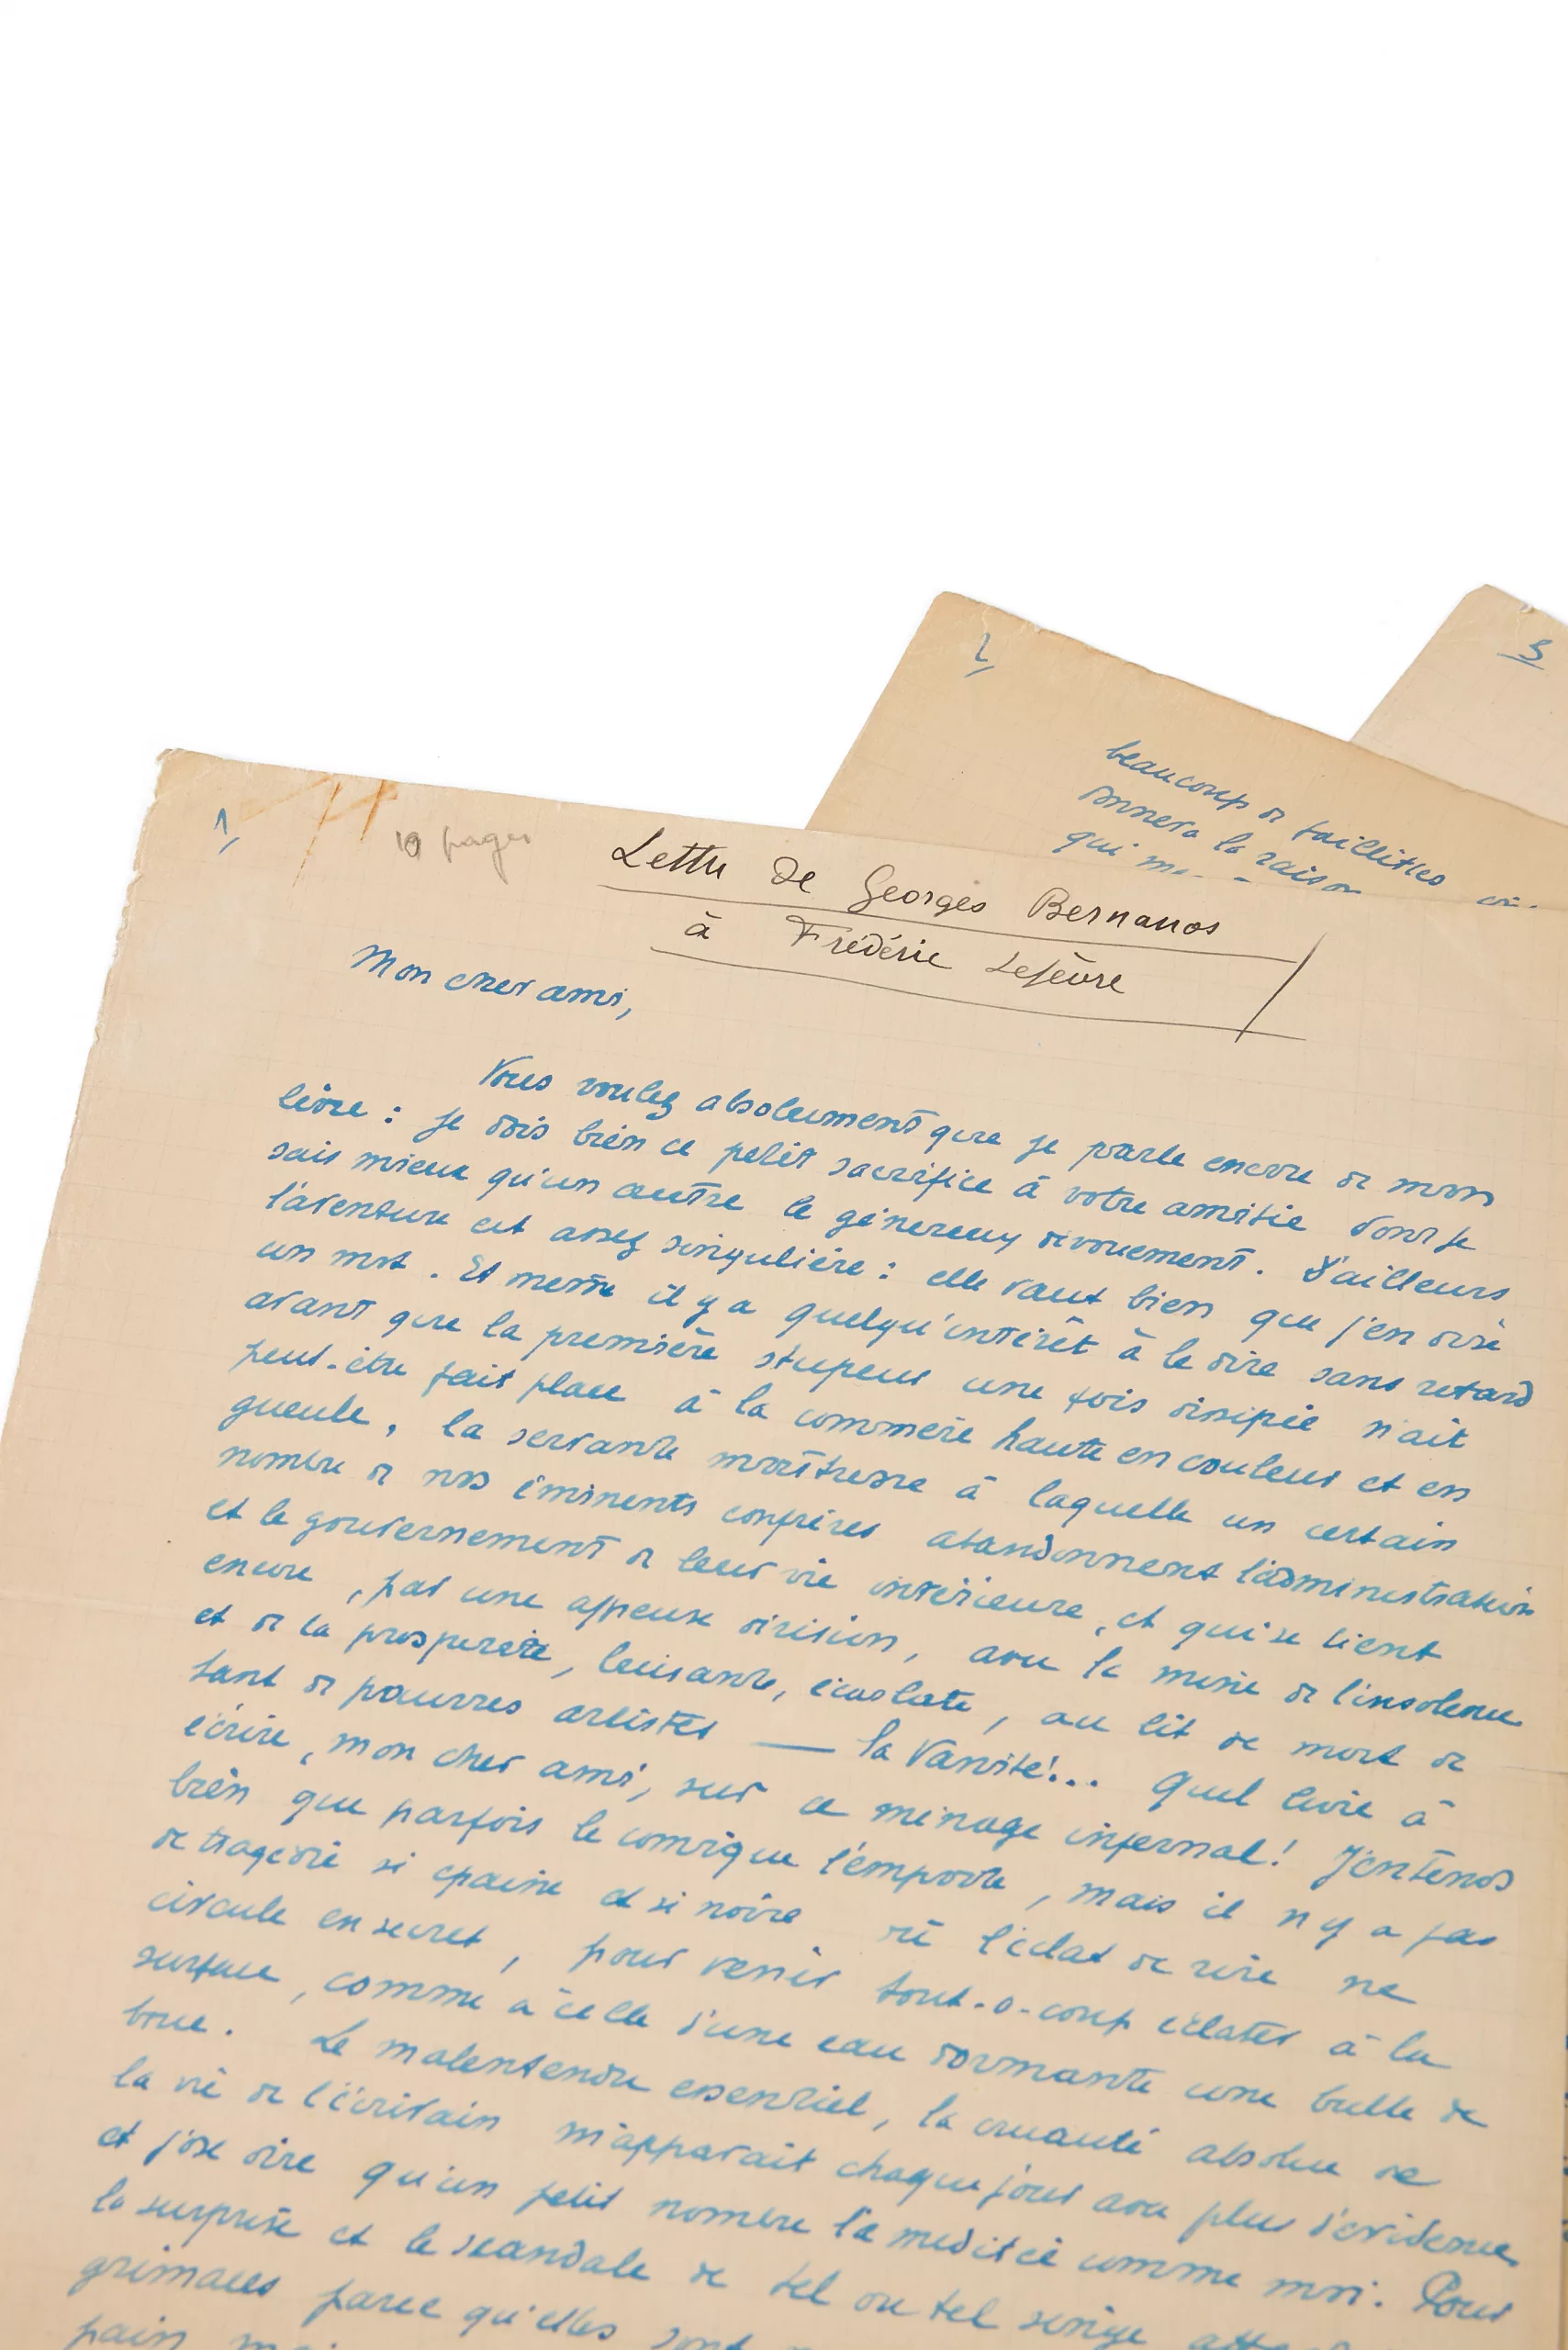 1,
10 pages
Lettre de Georges Bernanos
à Frédéric Lefèvre
Mon cher ami,
Vous voulez absolument que je parle encore de mon
livre : je dois bien ce petit sacrifice à votre amitié dont je
sais mieux qu'un autre le généreux dévouement. D'ailleurs
l'aventure est assez singulière : elle vaut bien que j'en dise
un mot. Et même il y a quelqu'intérêt à le dire sans retard
avant que la première stupeur une fois dissipée n'ait
peut-être fait place à la commère haute en couleur et en
gueule, la servante maîtresse à laquelle un certain
nombre de nos éminents confrères abandonnent l'administration
et le gouvernement de leur vie intérieure, et qui se tient
encore, par une affreuse dérision, avec la mine de l'insolence
et de la prospérité, luisante, écarlate, au lit de mort de
tant de pauvres artistes — la Vanité!... Quel livre à
écrire, mon cher ami, sur ce ménage infernal! J'entends
bien que parfois le comique l'emporte, mais il n'y a pas
de tragédie si épaisse et si noire où l'éclat de rire ne
circule en secret, pour venir tout-à-coup éclater à la
surface, comme à celle d'une eau dormante une bulle de
boue. Le malentendu essentiel, la cruauté absolue de
la vie de l'écrivain m'apparait chaque jour avec plus d'évidence
et j'ose dire qu'un petit nombre l'a méditée comme moi. Pour
la surprise et le scandale de tel ou tel singe
grimaces parce qu'elles sont
pain
2,
beaucoup de faillites
donnera la raison
qui
3